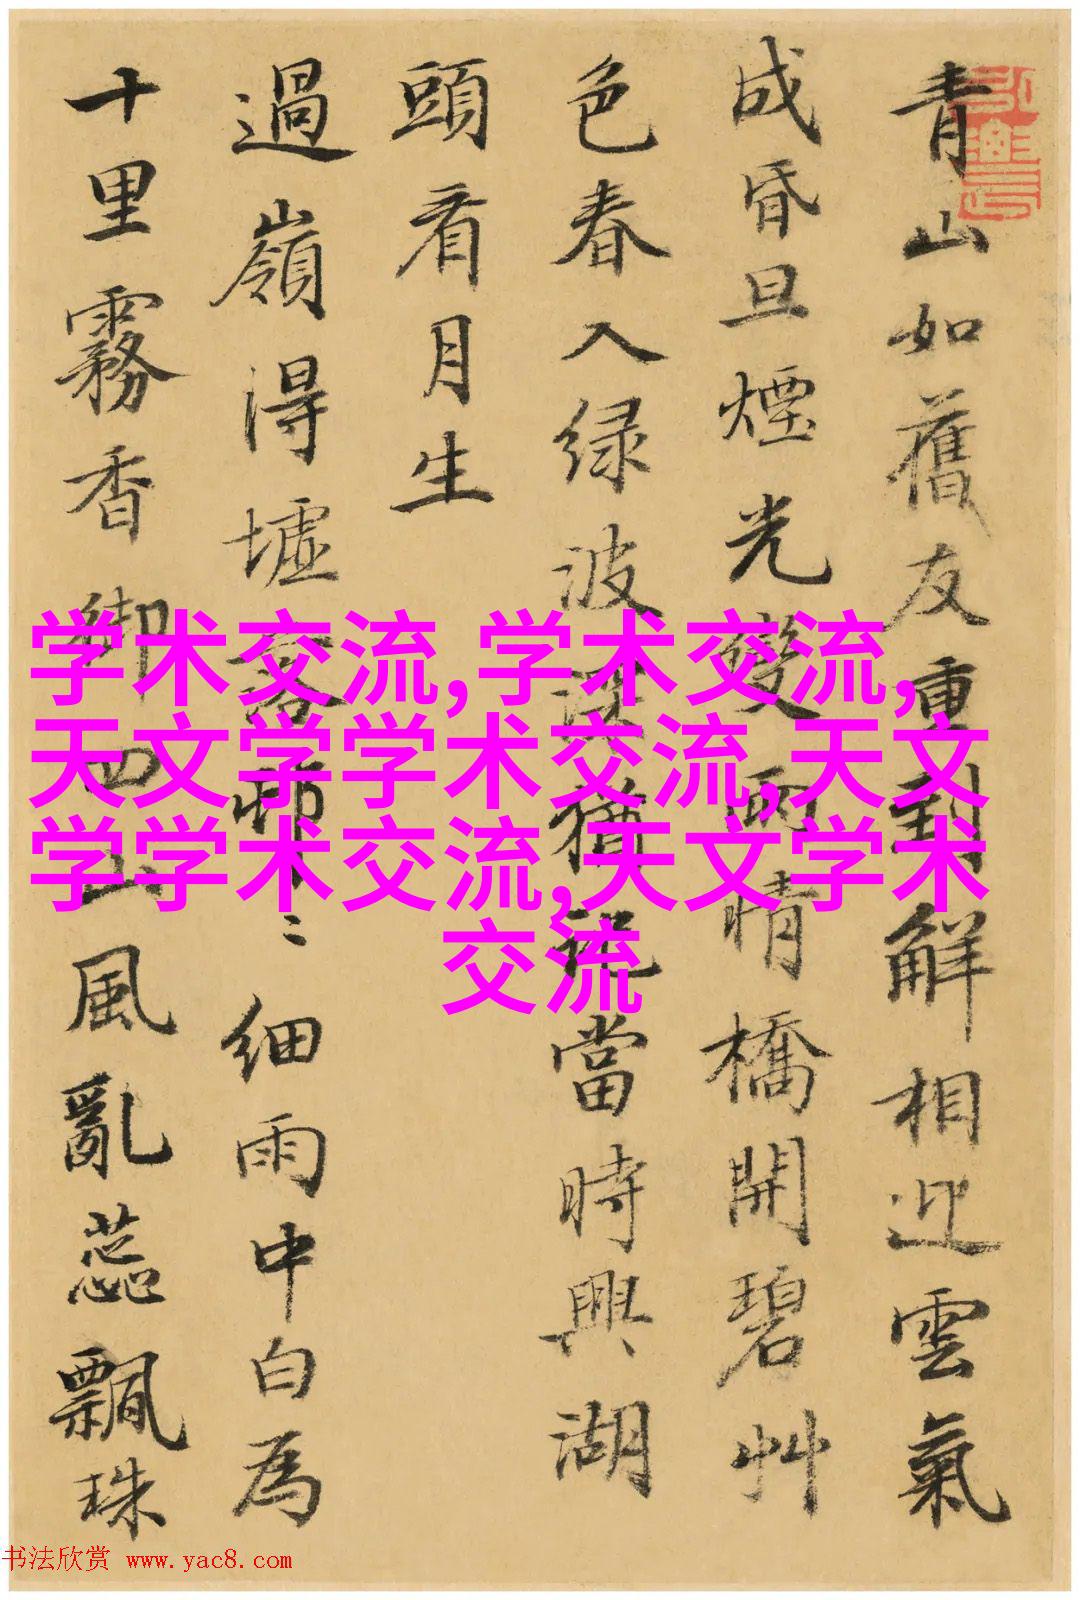 青山如舊友重到解相迎雲氣
成昏旦煙光變雨晴橋開碧艸
色春入绿波深猶記當時興湖
頭看月生
過嶺得墟落細雨中白為
十里霧香御四山風亂蕊飄珠
学术交流,学术交流,
天文学学术交流,天文
学学术交流,天文学术
交流
书法欣赏 www.yac8.com